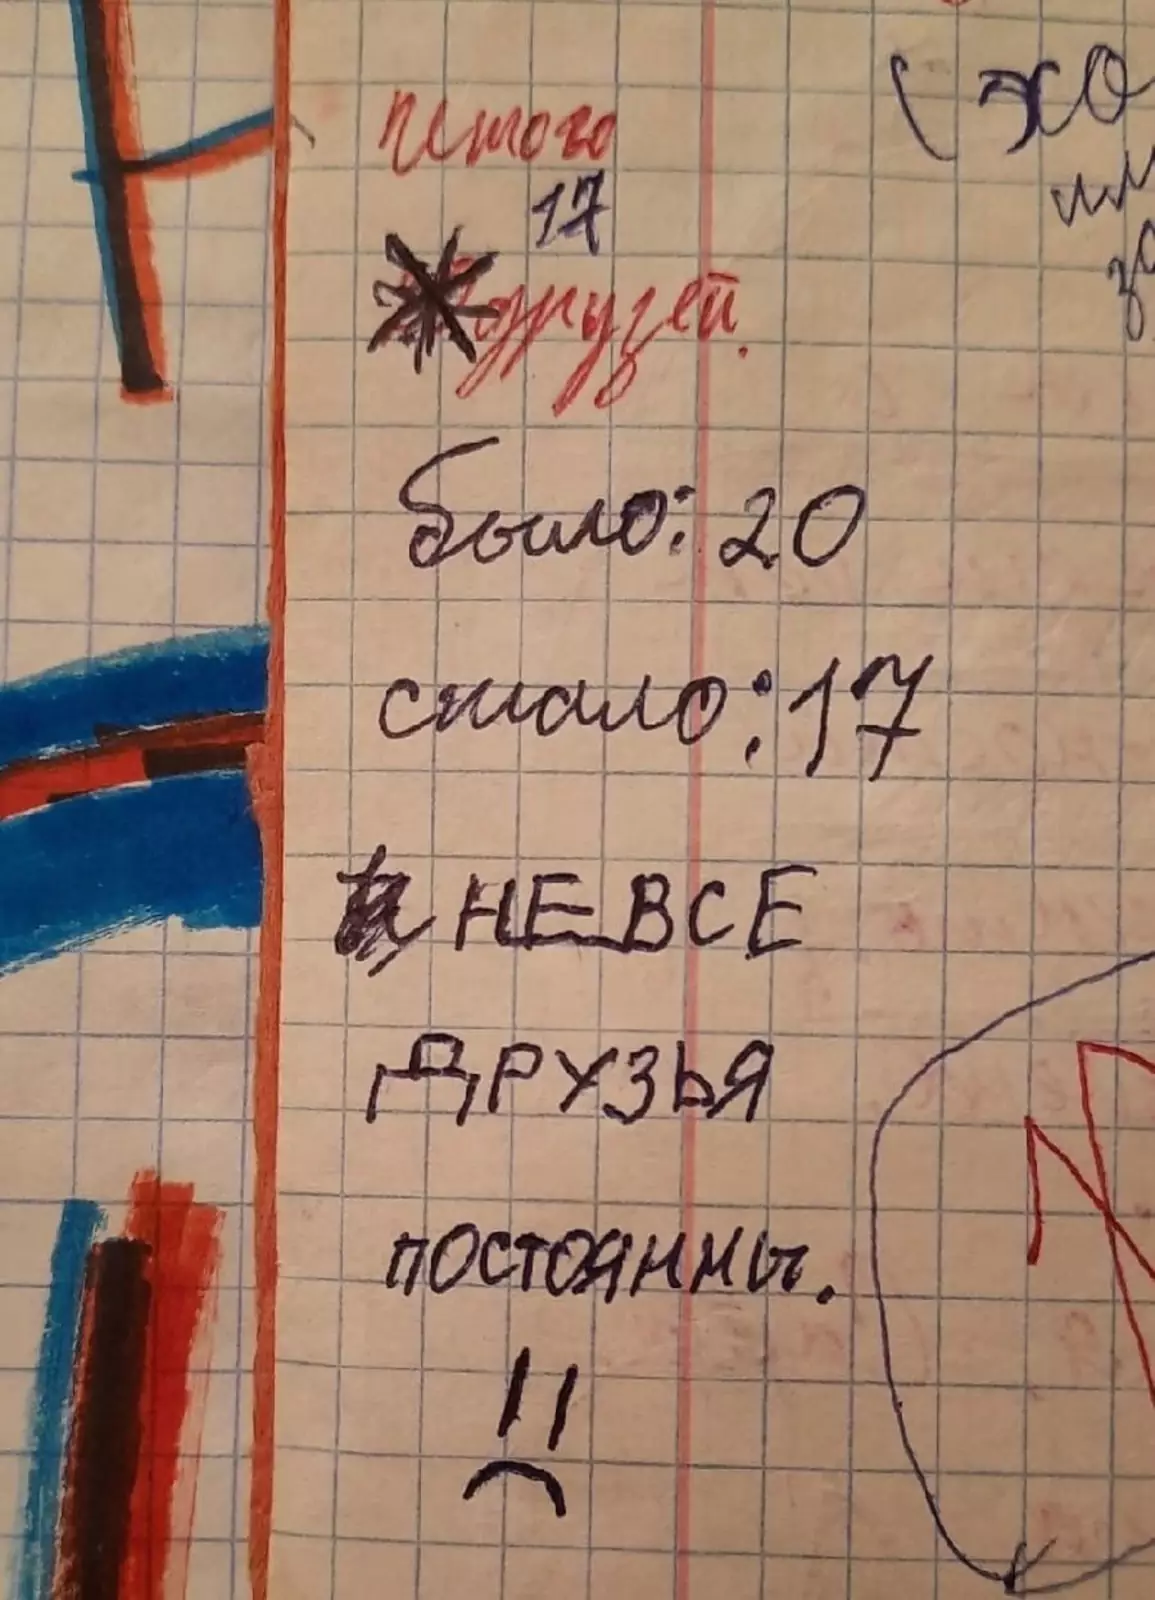 итого
17
друзей.
было: 20
стало: 17
НЕ ВСЕ
ДРУЗЬЯ
ПОСТОЯННЫ.